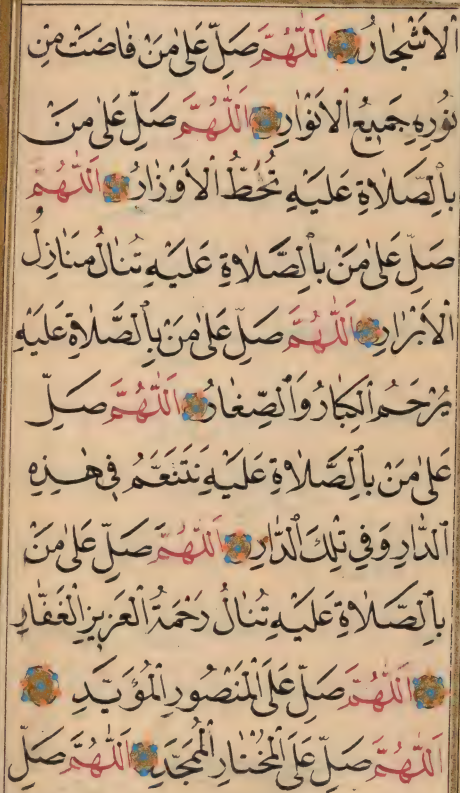 اَلْاَشْجَارُ اَللّٰهُمَّ صَلِّ عَلٰى مَنْ فَاضَتْ مِنْ
نُورِهِ جَمِيعُ الْاَنْوَارِ اَللّٰهُمَّ صَلِّ عَلٰى مَنْ
بِالصَّلَاةِ عَلَيْهِ تُحَطُّ الْاَوْزَارُ اَللّٰهُمَّ
صَلِّ عَلٰى مَنْ بِالصَّلَاةِ عَلَيْهِ تُنَالُ مَنَازِلُ
الْاَبْرَارِ اَللّٰهُمَّ صَلِّ عَلٰى مَنْ بِالصَّلَاةِ عَلَيْهِ
يُرْحَمُ الْكِبَارُ وَالصِّغَارُ اَللّٰهُمَّ صَلِّ
عَلٰى مَنْ بِالصَّلَاةِ عَلَيْهِ نَتَنَعَّمُ فِي هٰذِهِ
الدَّارِ وَفِي تِلْكَ الدَّارِ اَللّٰهُمَّ صَلِّ عَلٰى مَنْ
بِالصَّلَاةِ عَلَيْهِ تُنَالُ رَحْمَةُ الْعَزِيزِ الْغَفَّارِ
اَللّٰهُمَّ صَلِّ عَلَى الْمَنْصُورِ الْمُؤَيَّدِ
اَللّٰهُمَّ صَلِّ عَلَى الْمُخْتَارِ الْمُمَجَّدِ اَللّٰهُمَّ صَلِّ